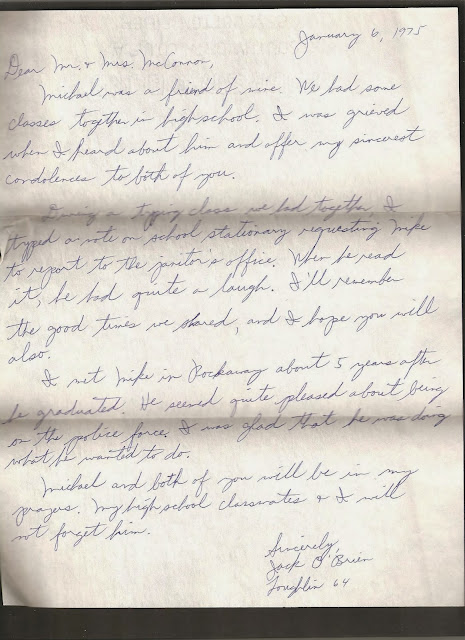 January 6, 1975
Dear Mr. & Mrs. McConnon,
Michael was a friend of mine. We had some
classes together in high school. I was grieved
when I heard about him and offer my sincerest
condolences to both of you.
During a typing class we had together, I
typed a note on school stationary requesting Mike
to report to the janitor's office. When he read
it, he had quite a laugh. I'll remember
the good times we shared, and I hope you will
also.
I met Mike in Rockaway about 5 years after
he graduated. He seemed quite pleased about being
on the police force. I was glad that he was doing
what he wanted to do.
Michael and both of you will be in my
prayers. My high school classmates & I will
not forget him.
Sincerely,
Jack O'Brien
Loughlin 64